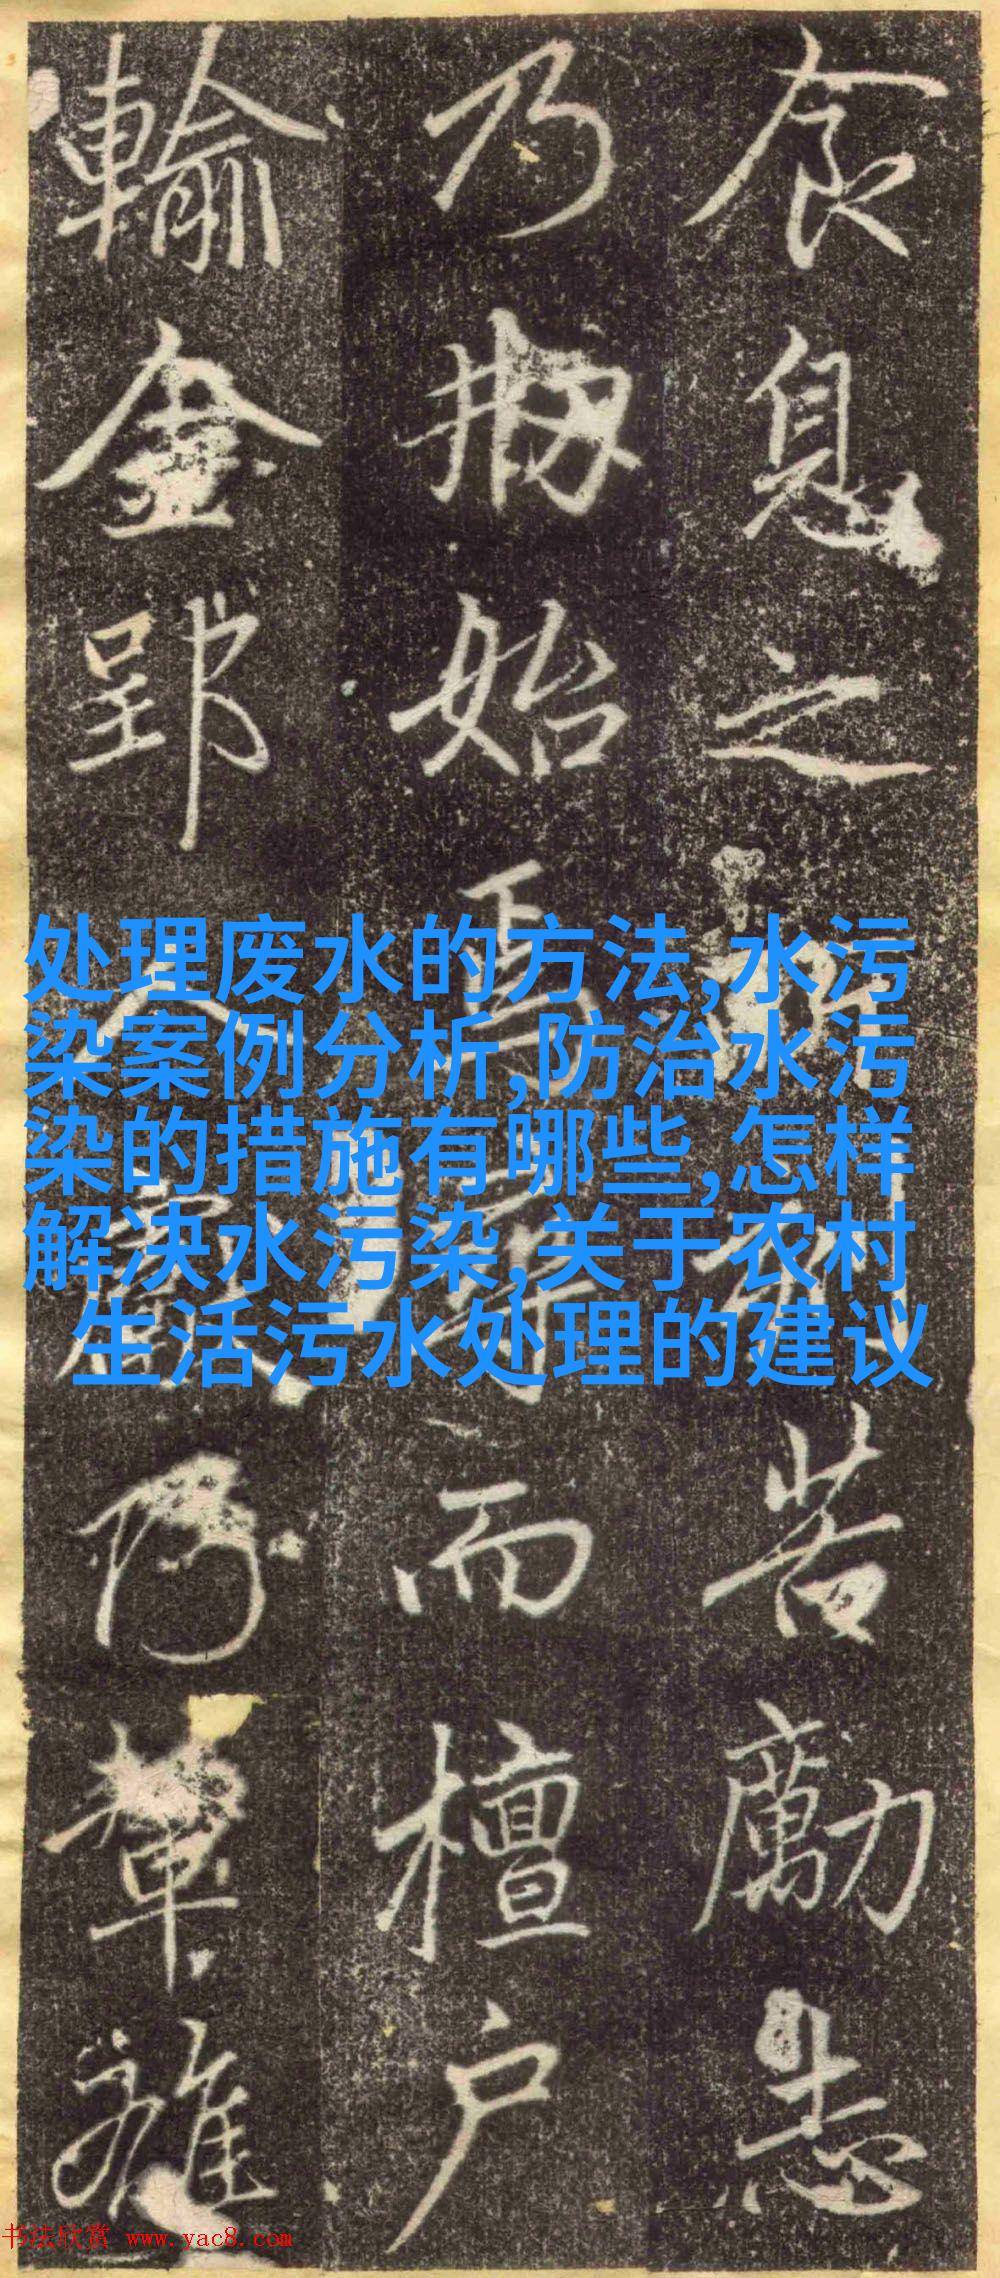 食息之
苦勵志
乃
始焉
而檀户
輸金郢
乃
輦雜
处理废水的方法,水污
染案例分析,防治水污
染的措施有哪些,怎样
解决水污染,关于农村
生活污水处理的建议
书法欣赏 www.yac8.com